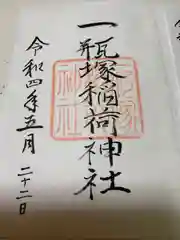 一瓶塚稲荷神社
令和四年五月
二十二日